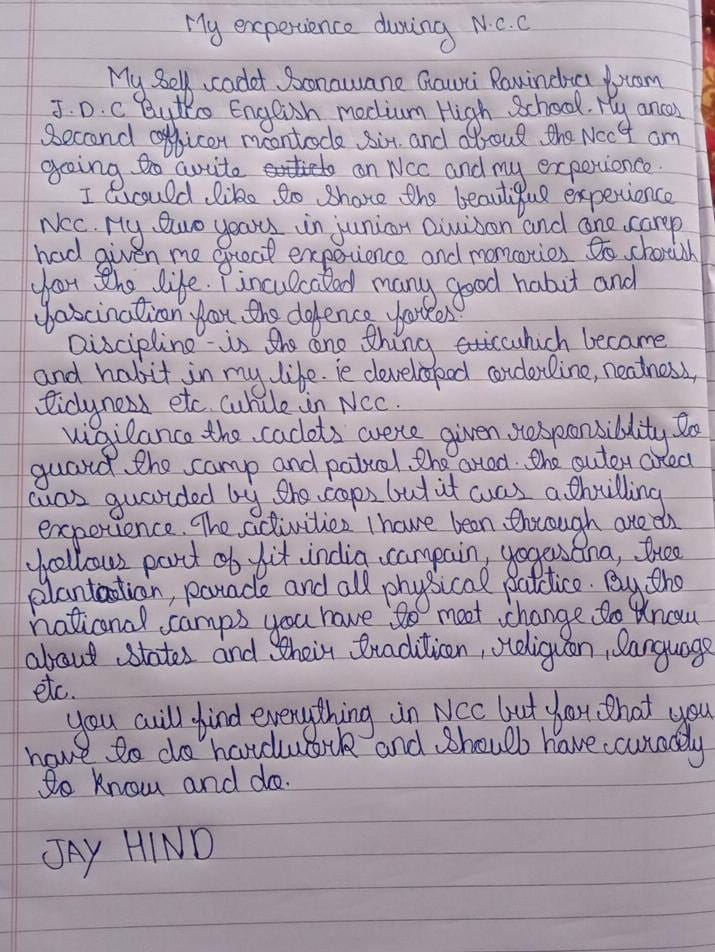 My experience during N.C.C
My Self cadet Sonawane Gauri Ravindra from
J.D.C Bytco English medium High School. My anos
Second officer mantode sir. and about the NCC I am
going to write on NCC and my experience.
I would like to share the beautiful experience
NCC. My two years in junior Divison and one camp
had given me great experience and momories to cherish
for the life. I inculcated many good habit and
fascination for the defence forces.
Discipline - is the one thing which became
and habit in my life. ie developed orderline, neatness,
tidyness etc. while in NCC.
vigilance the cadets were given responsiblity to
guard the camp and patrol the area. the outer area
was guarded by the cops but it was a thrilling
experience. The activities I have been through are as
follows part of fit india campain, yogasana, tree
plantation, parade and all physical patctice. By the
national camps you have to meet change to know
about states and their tradition, religion, language
etc.
you will find everything in NCC but for that you
have to do hardwork and shoulb have curacity
to know and do.
JAY HIND